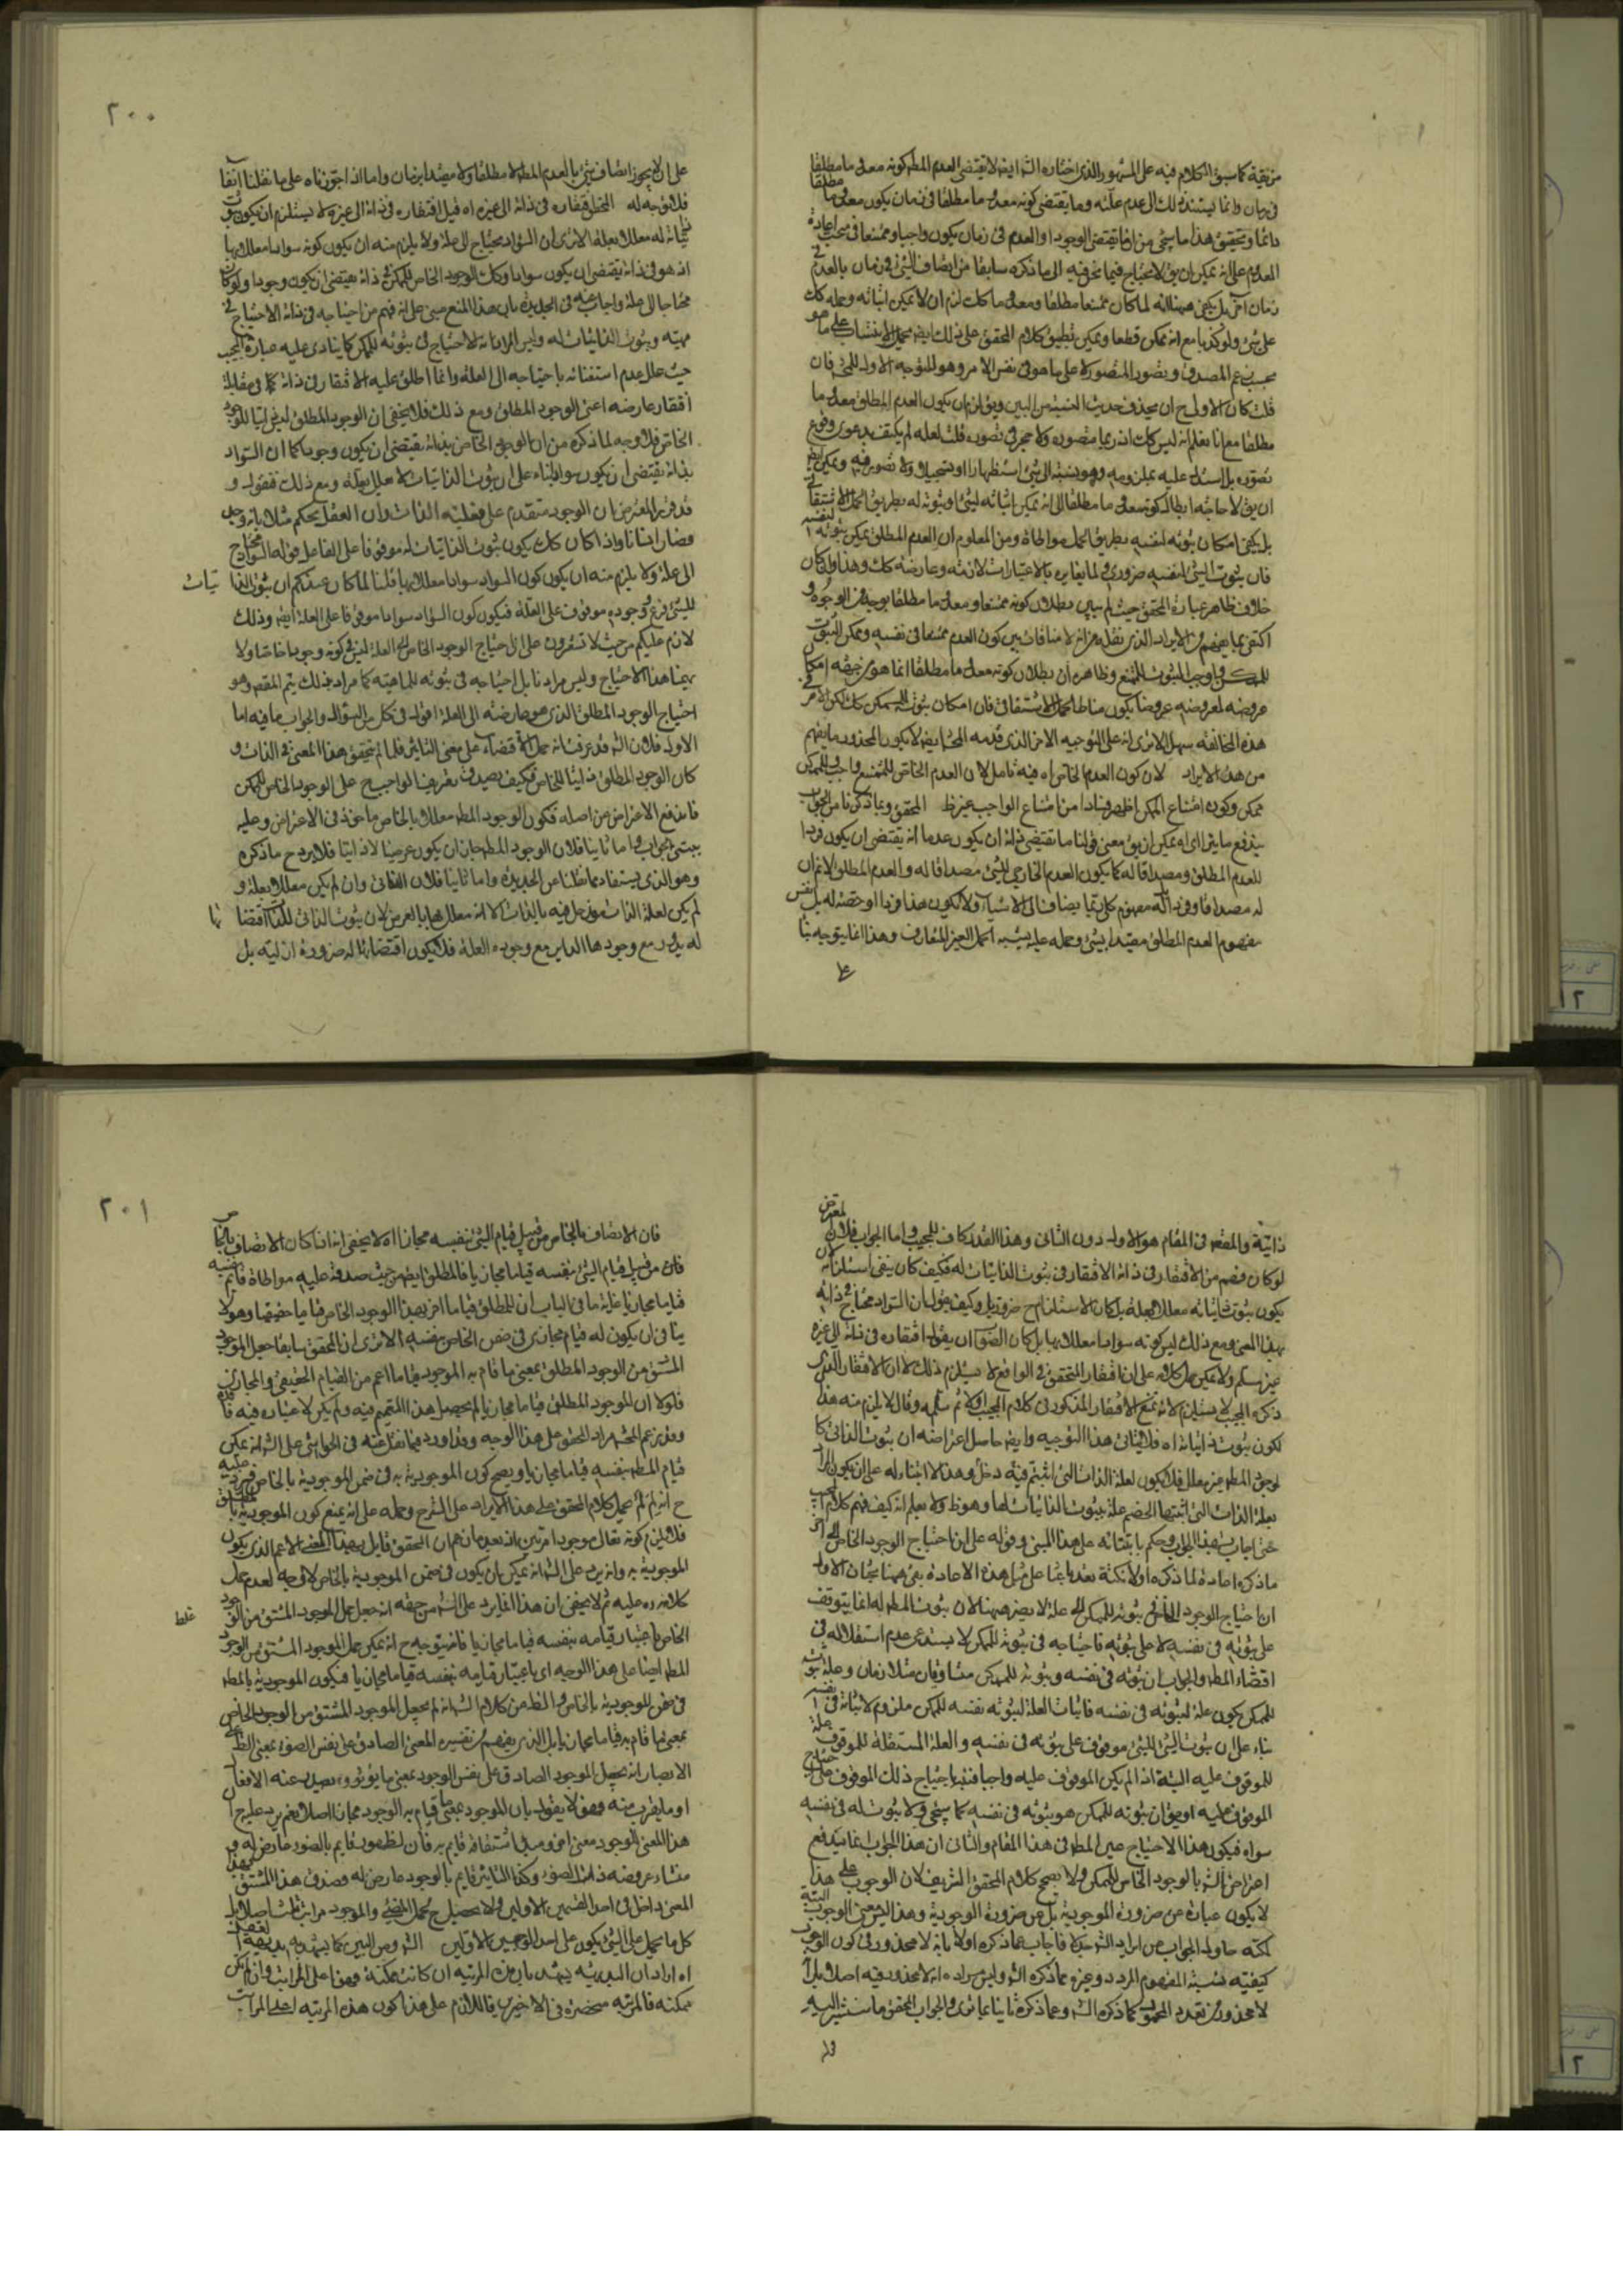 مزيقية كما سبق الكلام فيه على المشهور الذى اختاره الش ايضا لا يقتضى العدم المط كونه معدوما مطلقا
فى زمان وانما يستند ذلك الى عدم علته وما يقتضى كونه معدوما مطلقا فى زمان يكون معدوما مطلقا
دائما وتحقيق هذا ما سيجئ من ان ما يقتضى الوجود او العدم فى زمان يكون واجبا وممتنعا فى مبحث اعادة
المعدوم على انه يمكن ان يق لا يحتاج فيما نحن فيه الى ما ذكره سابقا من اتصاف الشئ فى زمان بالعدم فى
زمان آخر بل يكفى ههنا انه لما كان ممتنعا مطلقا ومعدوما كك لزم ان لا يمكن اثباته وحمله كك
على شئ ولو كذبا مع انه ممكن قطعا ويمكن تطبيق كلام المحقق على ذلك ايضا بحمل الانتساب على ما هو
بحسب زعم المصدق وتصور المتصور لا على ما هو فى نفس الامر وهو للتوجيه الاول للمحشى فان
قلت كان الاولى ح ان يحذف حديث النسبة من البين ويق لزم ان يكون العدم المطلق معدوما
مطلقا مع انا نعلم انه ليس كك اذ ربما يتصوره ولا حجر فى تصوره قلت لعله لم يكتف بدعوى وقوع
تصوره بل استدل عليه بملزومه وهو نسبته الى شئ استظهارا او تسجيلا ولا تصوير فيه ويمكن ايضا
ان يق لا حاجة فى ابطال كونه معدوما مطلقا الى انه يمكن اثباته لشئ او ثبوته له بطريق الحمل الاشتقاقى
بل يكفى امكان ثبوته لنفسه بطريق الحمل مواطاة ومن المعلوم ان العدم المطلق يمكن ثبوته لنفسه
فان ثبوت الشئ لنفسه ضرورى لما يغايره بالاعتبارات لازمته وعارضة كك وهذا وان كان
خلاف ظاهر عبارة المحقق حيث لم يبين بطلان كونه ممتنعا ومعدوما مطلقا بوجه من الوجوه و
اكتفى بما يفهم من الايراد الذى نقل من انه لا منافات بين كون العدم ممتنعا فى نفسه وممكن الثبوت
للممكن او واجب الثبوت للممتنع وظاهره ان بطلان كونه معدوما مطلقا انما هو من جهة امكان
عروضه لمعروضه عروضا يكون مناطا لحمل الاشتقاقى فان امكان ثبوته للممكن كك لكن الامر فى
هذه المخالفة سهل الا ترى انه على التوجيه الآخر الذى قدمه المحشى ايضا لا يكون المحذور ما يفهم
من هذا الايراد لان كون العدم الخاص اه فيه تامل لان العدم الخاص للممتنع واجب وللممكن
ممكن وكونه امتناع الممكن اظهر فسادا من امتناع الواجب غير ظ المحقق وبما ذكرنا من الجواب
يندفع ما يتراءى اه يمكن ان يق معنى قولنا ما تقتضى ذاته ان يكون عدما انه يقتضى ان يكون فردا
للعدم المطلق ومصداقا له كما يكون العدم الخارجى للشئ مصداقا له والعدم المطلق لا نم ان
له مصداقا وفردا لانه مفهوم كلى ربما يضاف الى الاشياء ولا يكون هذا فردا او حصة له بل نفس
مفهوم العدم المطلق مقيدا بشئ وحمله عليه يشبه الحمل الغير المتعارف وهذا انما يتوجه بناء
على
٢٠٠
على ان لا يجوز اتصاف شئ بالعدم المط لا مطلقا ولا مقيدا بزمان واما اذا جوزناه على ما نقلنا آنفا
فلا توجه له المحط افتقاره فى ذاته الى غيره اه قيل افتقاره فى ذاته الى غيره لا يستلزم ان يكون ثبوت
ذاتياته له معللا بعلة الا ترى ان السواد محتاج الى علة ولا يلزم منه ان يكون كونه سوادا معللا بها
اذ هو فى ذاته يقتضى ان يكون سوادا وكك الوجود الخاص للممكن فى ذاته يقتضى ان يكون وجودا ولو كان
محتاجا الى علة واجاب عنه فى الجديدة بان هذا المنع مبنى على انه فهم من احتياجه فى ذاته الاحتياج فى
مهيته وثبوت الذاتيات له وليس المراد بل الاحتياج فى ثبوته للممكن كما ينادى عليه عبارة المجيب
حيث علل عدم استغنائه باحتياجه الى العلة وانما اطلق عليه الافتقار فى ذاته كما فى مقابلة
افتقار عارضه اعنى الوجود المطلق ومع ذلك فلا يخفى ان الوجود المطلق ليس ذاتيا للوجود
الخاص فلا وجه لما ذكره من ان الوجود الخاص بذاته يقتضى ان يكون وجودا كما ان السواد
بذاته يقتضى ان يكون سوادا بناء على ان ثبوت الذاتيات لا يعلل بعلة ومع ذلك فنقول و
قد قرر المعترض ان الوجود متقدم على فعلية الذات وان العقل يحكم مثلا بانه وجد
فصار انسانا واذا كان كك يكون ثبوت الذاتيات له موقوفا على الفاعل فقوله السواد محتاج
الى علة ولا يلزم منه ان يكون كون السواد سوادا معللا بها قلنا لما كان عندكم ان ثبوت الذاتيات
للشئ فرع وجوده موقوف على العلة فيكون كون السواد سوادا موقوفا على العلة ايضا وذلك
لازم عليكم من حيث لا تشعرون على ان احتياج الوجود الخاص الى العلة ليس فى كونه وجودا خاصا ولا
يهمنا هذا الاحتياج وليس مرادنا بل احتياجه فى ثبوته للماهية كما مر وبذلك يتم المقص وهو
احتياج الوجود المطلق الذى هو عارضة الى العلة اقول فى كل من السؤال والجواب ما فيه اما
الاول فلان الش قد عرفت انه حمل الاقتضاء على معنى التاثير فلما لم يتحقق هذا المعنى فى الذات و
كان الوجود المطلق ذاتيا للخاص فكيف يصدق تعريف الواجب على الوجود الخاص للممكن
فاندفع الاعتراض من اصله فكون الوجود المط معللا بالخاص ماخوذ فى الاعتراض وعليه
يبتنى الجواب واما ثانيا فلان الوجود المط جاز ان يكون عرضيا لا ذاتيا فلا يرد ح ما ذكره
وهو الذى يستفاد مما نقلنا من الجديدة واما ثالثا فلان الذاتى وان لم يكن معللا بعلة و
لم يكن لعلة الذات مدخل فيه بالذات الا انه معلل بها بالعرض لان ثبوت الذاتى للذات اقتضاءها
له يدور مع وجودها الدائر مع وجود العلة فلا يكون اقتضائها له ضرورة ازلية بل
ذاتية والمقص فى المقام هو الاول دون الثانى وهذا القدر كاف للمجيب واما الجواب فلان المعترض
لو كان فهم من الافتقار فى ذاته الافتقار فى ثبوت الذاتيات له فكيف كان ينفى استلزامه لان
يكون ثبوت ذاتياته معللا بعلة بل كان الاستلزام ح ضروريا بل وكيف يقول ان السواد محتاج فى ذاته
بهذا المعنى ومع ذلك ليس كونه سوادا معللا بها بل كان الصواب ان يقول افتقاره فى ذاته الى غيره
غير مسلم ولا يمكن حمل كلامه على ان افتقار المتحقق فى الواقع لا يستلزم ذلك لا ان الافتقار الذى
ذكره المجيب لا يستلزم لانه تمنع الافتقار المذكور فى كلام المجيب اولا ثم سلمه وقال لا يلزم منه هذا
لكون ثبوت ذاتياته اه فلا يتانى هذا التوجيه وايضا حاصل اعتراضه ان ثبوت الذاتى كا
لوجود المط غير معلل فلا يكون لعلة الذات التى اثبتم فيه دخل وهذا لا ابتناء له على ان يكون المراد
بعلة الذات التى اثبتها الخصم علة ثبوت الذاتيات لها وهو ظ ولا يعلم انه كيف فهم كلام المجيب
حتى اجاب بهذا الجواب وحكم بابتنائه على هذا المبنى وقوله على ان احتياج الوجود الخاص الى اخر
ما ذكره اعادة لما ذكره اولا لنكتة نعد باعثا على مثل هذه الاعادة بقى ههنا بحثان الاول
ان احتياج الوجود الخاص فى ثبوته للممكن الى علة لا يضر ههنا لان ثبوت المط له انما يتوقف
على ثبوته فى نفسه لا على ثبوته فاحتياجه فى ثبوته للممكن لا يستدعى عدم استقلاله فى
اقتضاء المط والجواب ان ثبوته فى نفسه وثبوته للممكن متساوقان متلازمان وعلة ثبوته
للممكن يكون علة لثبوته فى نفسه فاثبات العلة لثبوته نفسه للممكن ملزوم لاثباته فى نفسه
بناء على ان ثبوت الشئ للشئ موقوف على ثبوته فى نفسه والعلة المستقلة للموقوف علة
للموقوف عليه البتة اذا لم يكن الموقوف عليه واجبا فنبه باحتياج ذلك الموقوف على احتياج
الموقوف عليه او يق ان ثبوته للممكن هو ثبوته فى نفسه كما سيجئ ولا ثبوت له فى نفسه
سواه فيكون هذا الاحتياج عين المط فى هذا المقام والثانى ان هذا الجواب انما يدفع
اعتراض الش بالوجود الخاص للممكن ولا يصحح كلام المحقق الشريف لان الوجوب على هذا
لا يكون عبارة عن ضرورة الموجودية بل عن ضرورة الوجودية وهذا ليس معنى الوجوب البتة
لكنه حاول الجواب عن ايراد الش جدلا فاجاب عما ذكره اولا بانه لا محذور فى كون الوجوب
كيفيته نسبة المفهوم المردد وغيره مما ذكره الش وليس مراده انه لا محذور فيه اصلا بل انه
لا محذور من تعدد المحمول كما ذكره الش وعما ذكره ثانيا بما نرى والجواب المحقق ما سنشير اليه
ولا
٢٠١
فان الاتصاف بالخاص من قبيل قيام الشئ بنفسه مجازا اه لا يخفى انه اذا كان الاتصاف بالخاص
فان من قبيل قيام الشئ بنفسه قياما مجازيا فالمطلق ايضا من حيث صدقه عليه مواطاة قائم بنفسه
قياما مجازيا غاية ما فى الباب ان للمطلق قياما آخر بهذا الوجود الخاص قياما حقيقيا وهو لا
ينافى ان يكون له قيام مجازى فى ضمن الخاص بنفسه الا ترى ان المحقق سابقا جعل الموجود
المشتق من الوجود المطلق بمعنى ما قام به الموجود قياما اعم من القيام الحقيقى والمجازى
فلولا ان للموجود المطلق قياما مجازيا لم يحصل هذا التعميم فيه ولم يكن لاعتباره فيه فائدة
وقد زعم المحشى مراد المحقق على هذا الوجه وقد اورد فيما نقل عنه فى الحواشى على الش انه يمكن
قيام المط بنفسه قياما مجازيا ويصح كون الموجودية به فى ضمن الموجودية بالخاص فيرد عليه
ح انه لم لم يحمل كلام المحقق على هذا الايراد على الشرح وحمله على انه يمنع كون الموجودية بالمطلق
فلا يلزم كونه تعالى موجودا مرتين اذ بعد ما زعم ان المحقق قايل بهذا المعنى الاعم الذى يكون
الموجودية به وانه يرد على الش انه يمكن بان يكون فى ضمن الموجودية بالخاص لا وجه لعدم حمل
كلامه ره عليه ثم لا يخفى ان هذا انما يرد على الش من جهة انه جعل حمل الموجود المشتق من الوجود
غلط
الخاص باعتبار قيامه بنفسه قياما مجازيا فانه يتوجه ح انه يمكن حمل الموجود المشتق من الوجود
المط ايضا على هذا الوجه اى باعتبار قيامه بنفسه قياما مجازيا فيكون الموجودية بالمط
فى ضمن الموجودية بالخاص والظ من كلام الش انه لم يجعل الموجود المشتق من الوجود الخاص
بمعنى ما قام به قياما مجازيا بل الذى يفهم من تفسيره المعنى الصادق على نفس الضوء بمعنى الظ على
الابصار انه يجعل الموجود الصادق على نفس الوجود بمعنى ما يؤثر ويصدر عنه الافعال
او ما يقرب منه فهو لا يقول بان للموجود بمعنى ما قيام به الوجود مجازا اصلا نعم يرد عليه ح ان
هذا المعنى للوجود معنى اخر ومبدأ اشتقاقه قايم به فان الظهور قايم بالضوء عارض له و
منشاء عروضه ذات الضوء وكذا التاثير قايم بالوجود عارض له وصدق هذا المشتق بهذا
المعنى داخل فى احد القسمين الاولين ولا يحصل ح محمل المضئ والموجود مراتب ثلث اصلا بل
كل ما يحمل على الشئ يكون على احد الوجهين الاولين الش ومن البين كما يشهد به بديهة العقل
اه اراد ان البديهة يشهد بان هذه المرتبة ان كانت ممكنة فهى اعلى المراتب وان لم يكن
ممكنة فالمرتبة منحصرة فى الاخيرين فاللازم على هذا كون هذه المرتبة اعلى المراتب